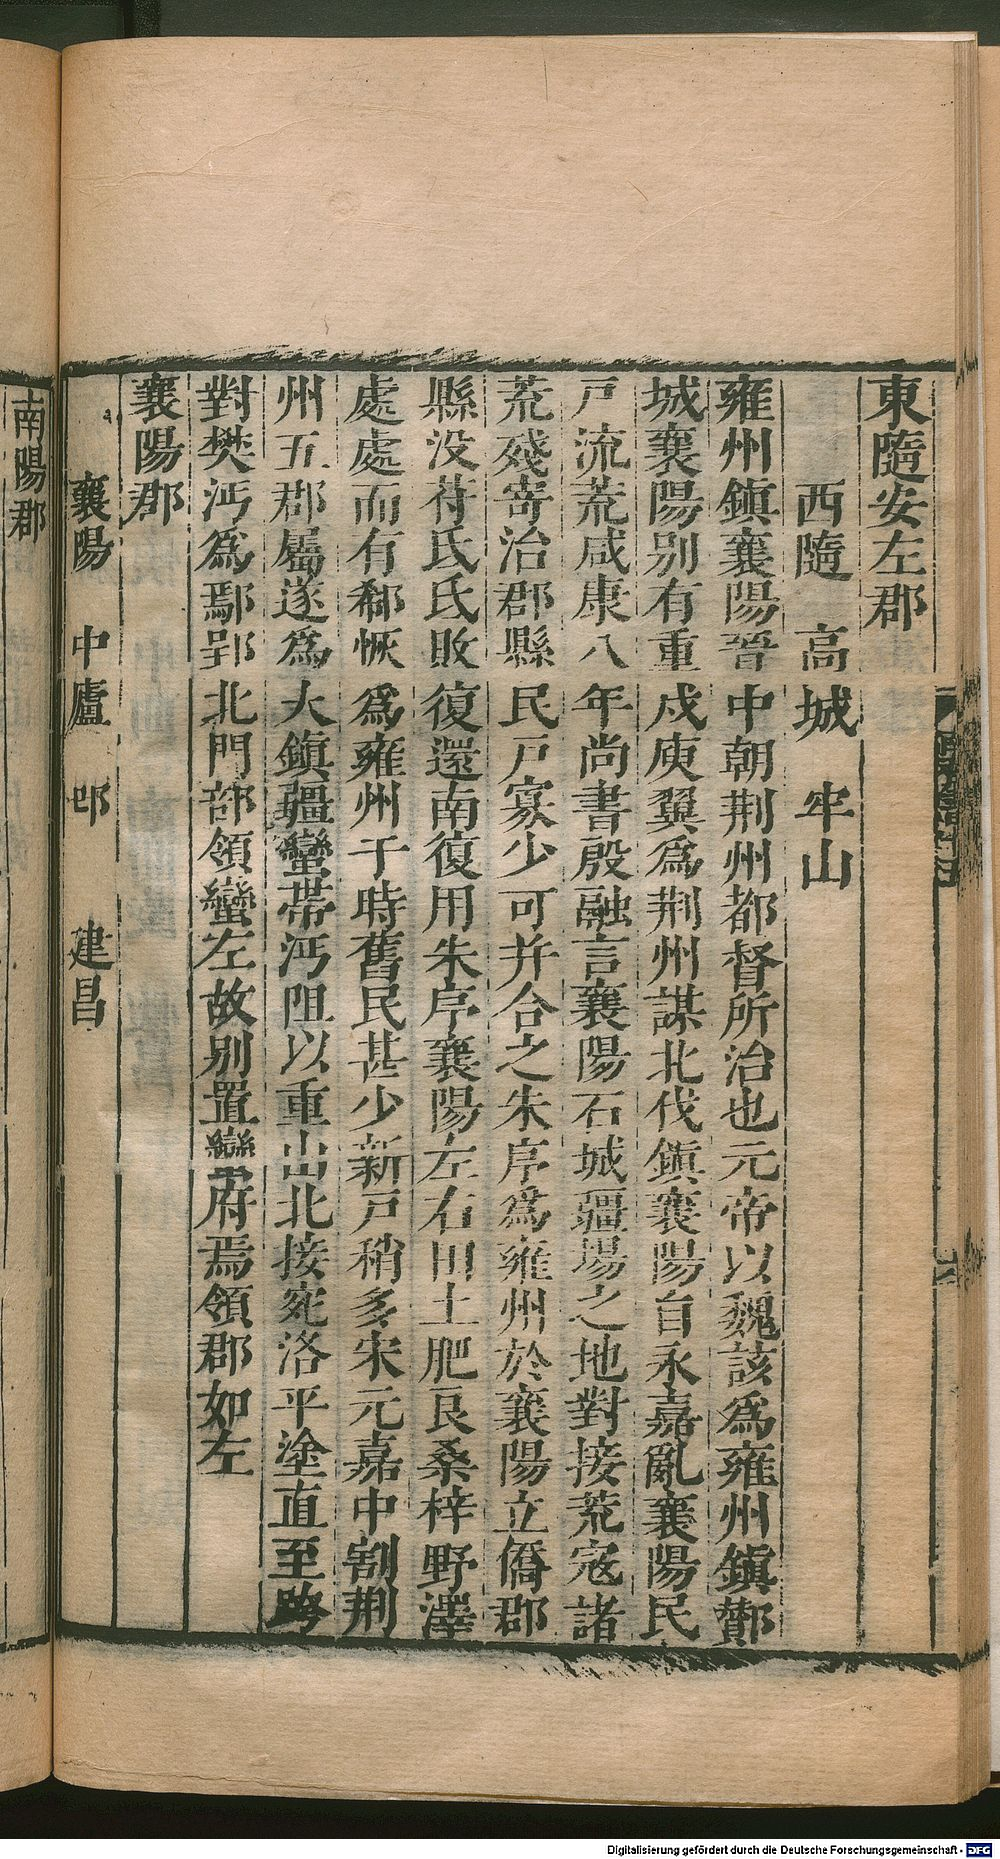 東隨安左郡
西隨　高城　牢山
雍州鎮襄陽晉中朝荆州都督所治也元帝以魏該爲雍州鎮酇
城襄陽别有重戍庾翼爲荆州謀北伐鎮襄陽自永嘉亂襄陽民
戸流荒咸康八年尚書殷融言襄陽石城疆場之地對接荒寇諸
荒殘寄治郡縣民戸寡少可并合之朱序爲雍州於襄陽立僑郡
縣没苻氏氐敗復還南復用朱序襄陽左右田土肥良桑梓野澤
處處而有郗恢爲雍州于時舊民甚少新戸稍多宋元嘉中割荆
州五郡屬遂爲大鎮疆蠻帶沔阻以重山北接宛洛平塗直至跨
對樊沔爲鄢郢北門部領蠻左故别置蠻府焉領郡如左
襄陽郡
襄陽　中廬　邔　建昌
南陽郡
Digitalisierung gefördert durch die Deutsche Forschungsgemeinschaft - DFG